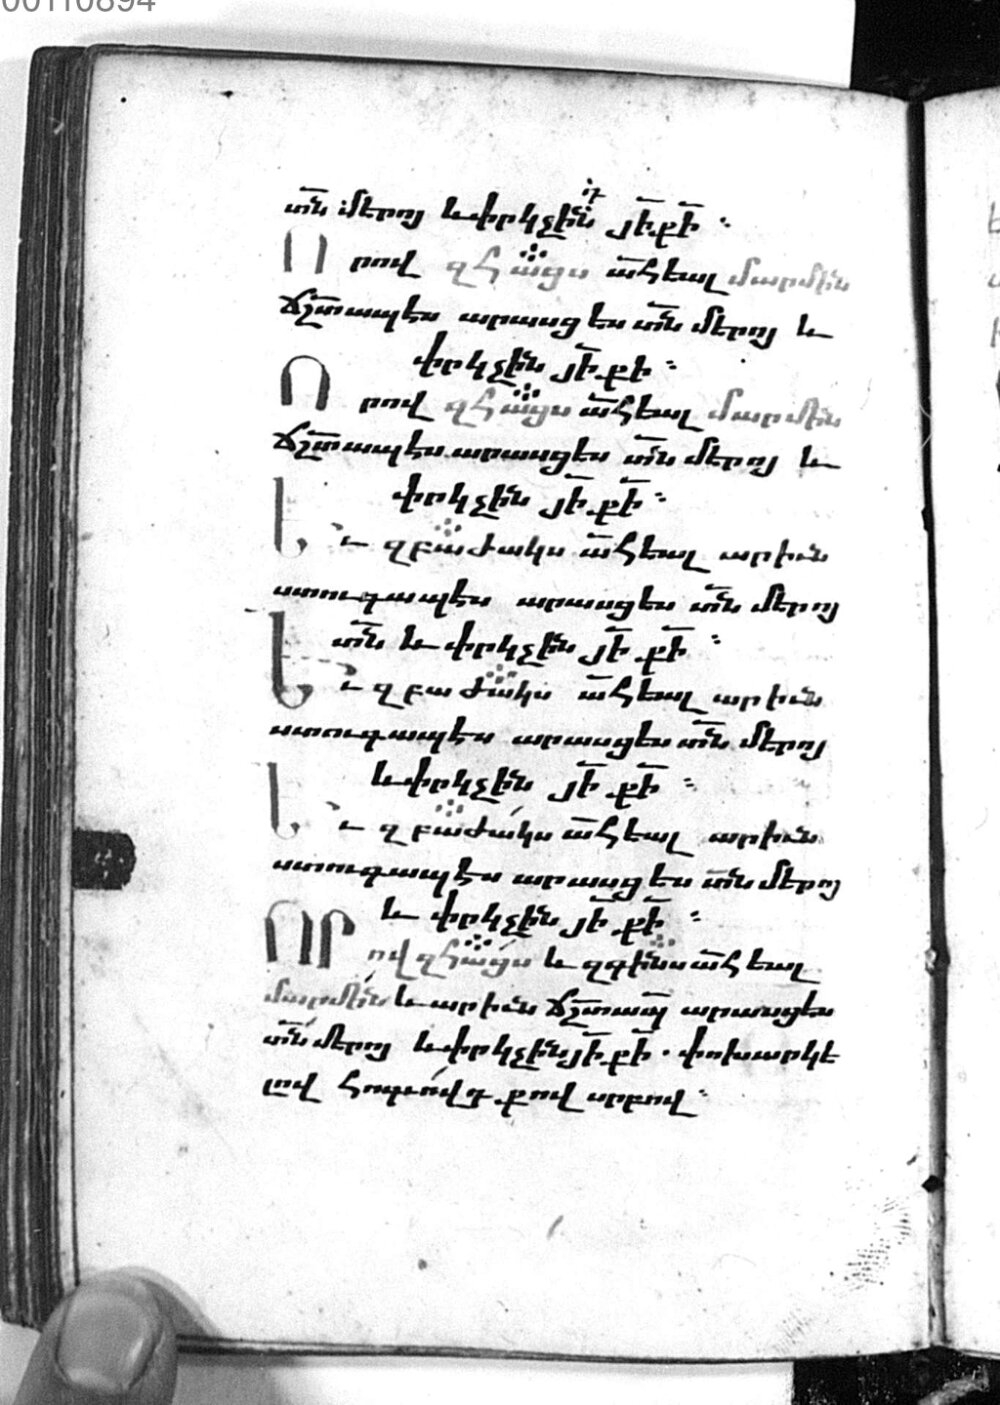 00110894
տն մերոյ և փրկչին յի քի ։
Որով զհացս ահեալ մարմին
ճշտապէս արասցես տն մերոյ և
փրկչին յի քի ։
Որով զհացս ահեալ մարմին
ճշտապէս արասցես տն մերոյ և
փրկչին յի քի ։
Եւ զբաժակս ահեալ արիւն
ստուգապէս արասցես տն մերոյ
տն և փրկչին յի քի ։
Եւ զբաժակս ահեալ արիւն
ստուգապէս արասցես տն մերոյ
և փրկչին յի քի ։
Եւ զբաժակս ահեալ արիւն
ստուգապէս արասցես տն մերոյ
և փրկչին յի քի ։
Որով զհացս և զգինս ահեալ
մարմին և արիւն ճշտապ արասցես
տն մերոյ և փրկչին յի քի . փոխարկե
լով հոգւովդ քով սրբով ։